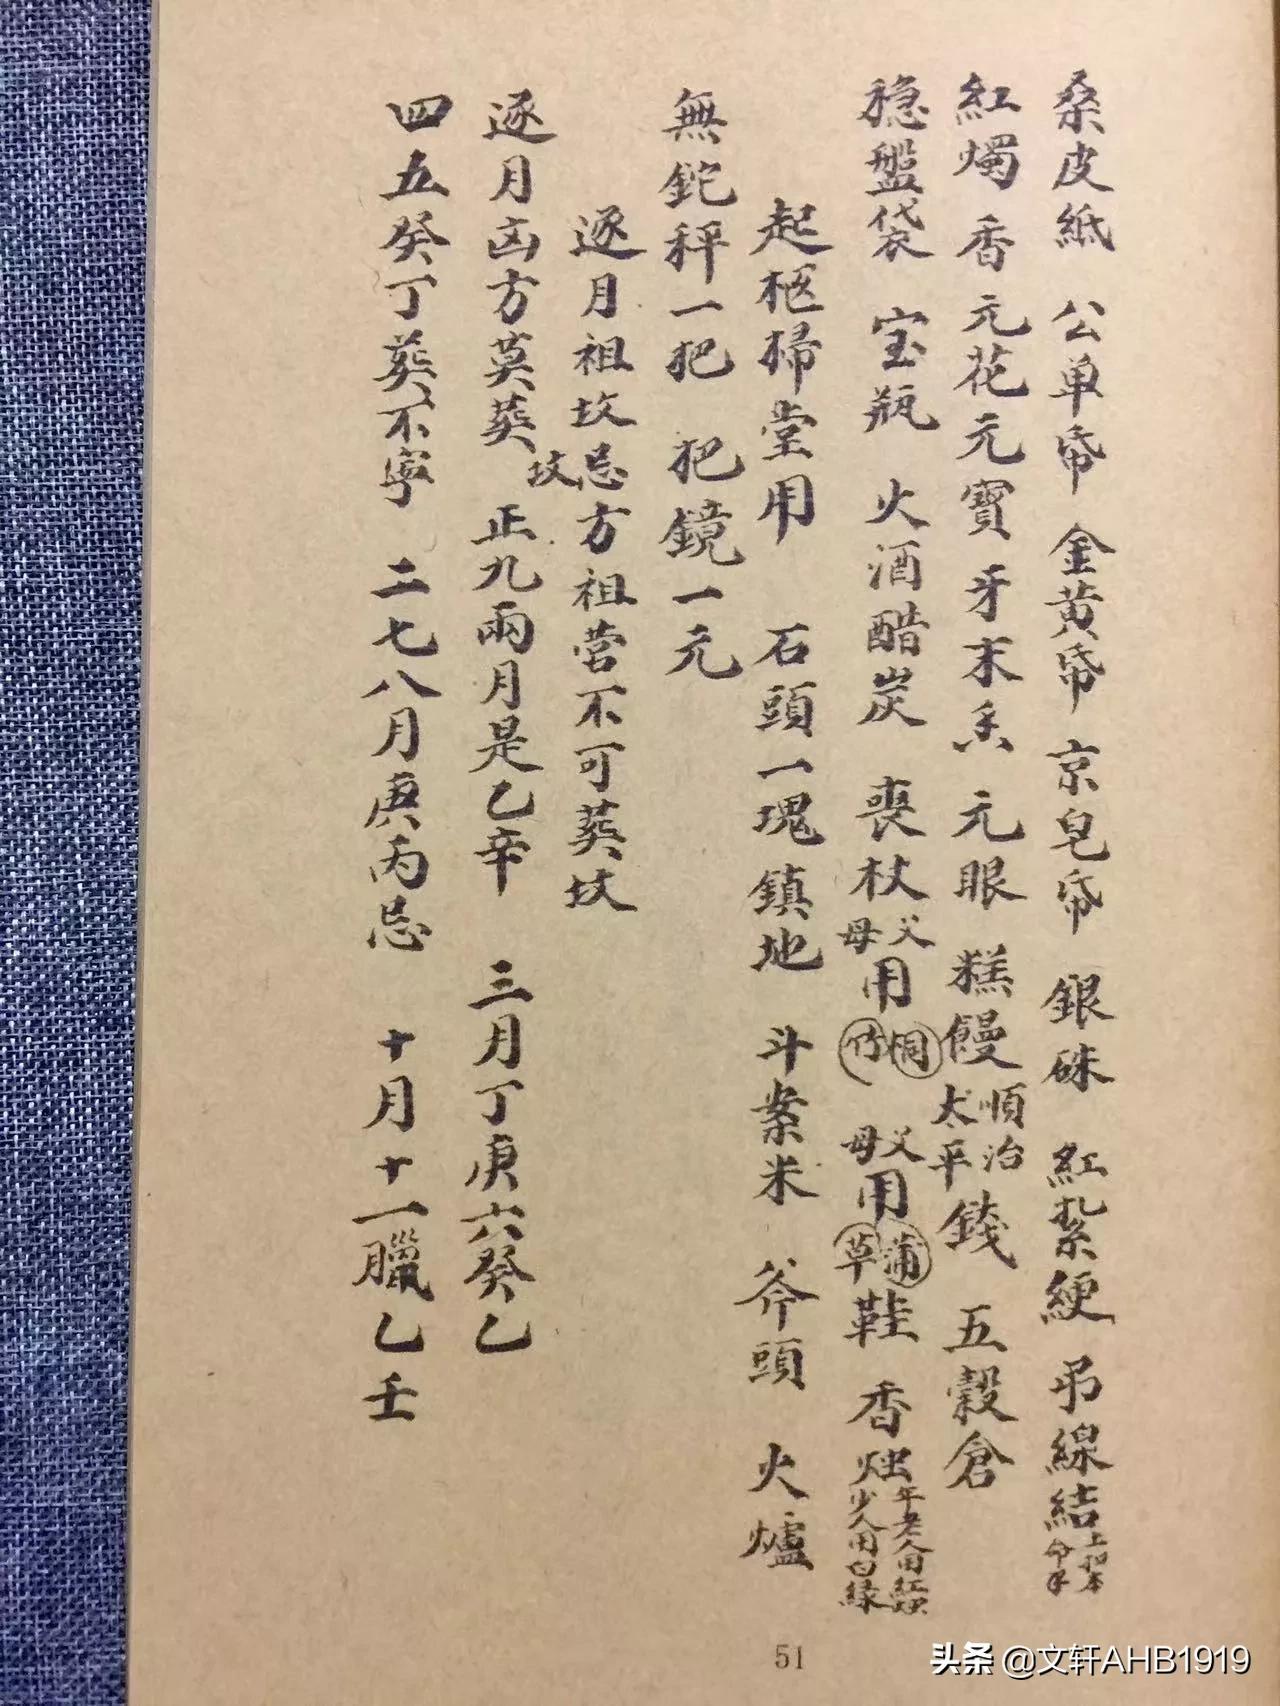 桑皮紙 公单帋 金黄帋 京皂帋 銀硃 紅紮綆 吊線結
紅燭 香 元花元寶 牙末香 元眼 糕饅 順治太平錢 五榖倉
稳盤袋 宝瓶 火酒醋炭 喪杖父母用桐竹 父母用蒲草鞋 香烛年老人用紅頭少人用白緑
起柩掃堂用 石頭一塊鎮地 斗案米 斧頭 火爐
無鉈秤一把 把鏡一元
逐月祖坟忌方祖营不可葬坟
逐月凶方莫葬坟 正九兩月是乙辛 三月丁庚六癸乙
四五癸丁葬不寧 二七八月庚丙忌 十月十一臘乙壬
51
头条 @文轩AHB1919